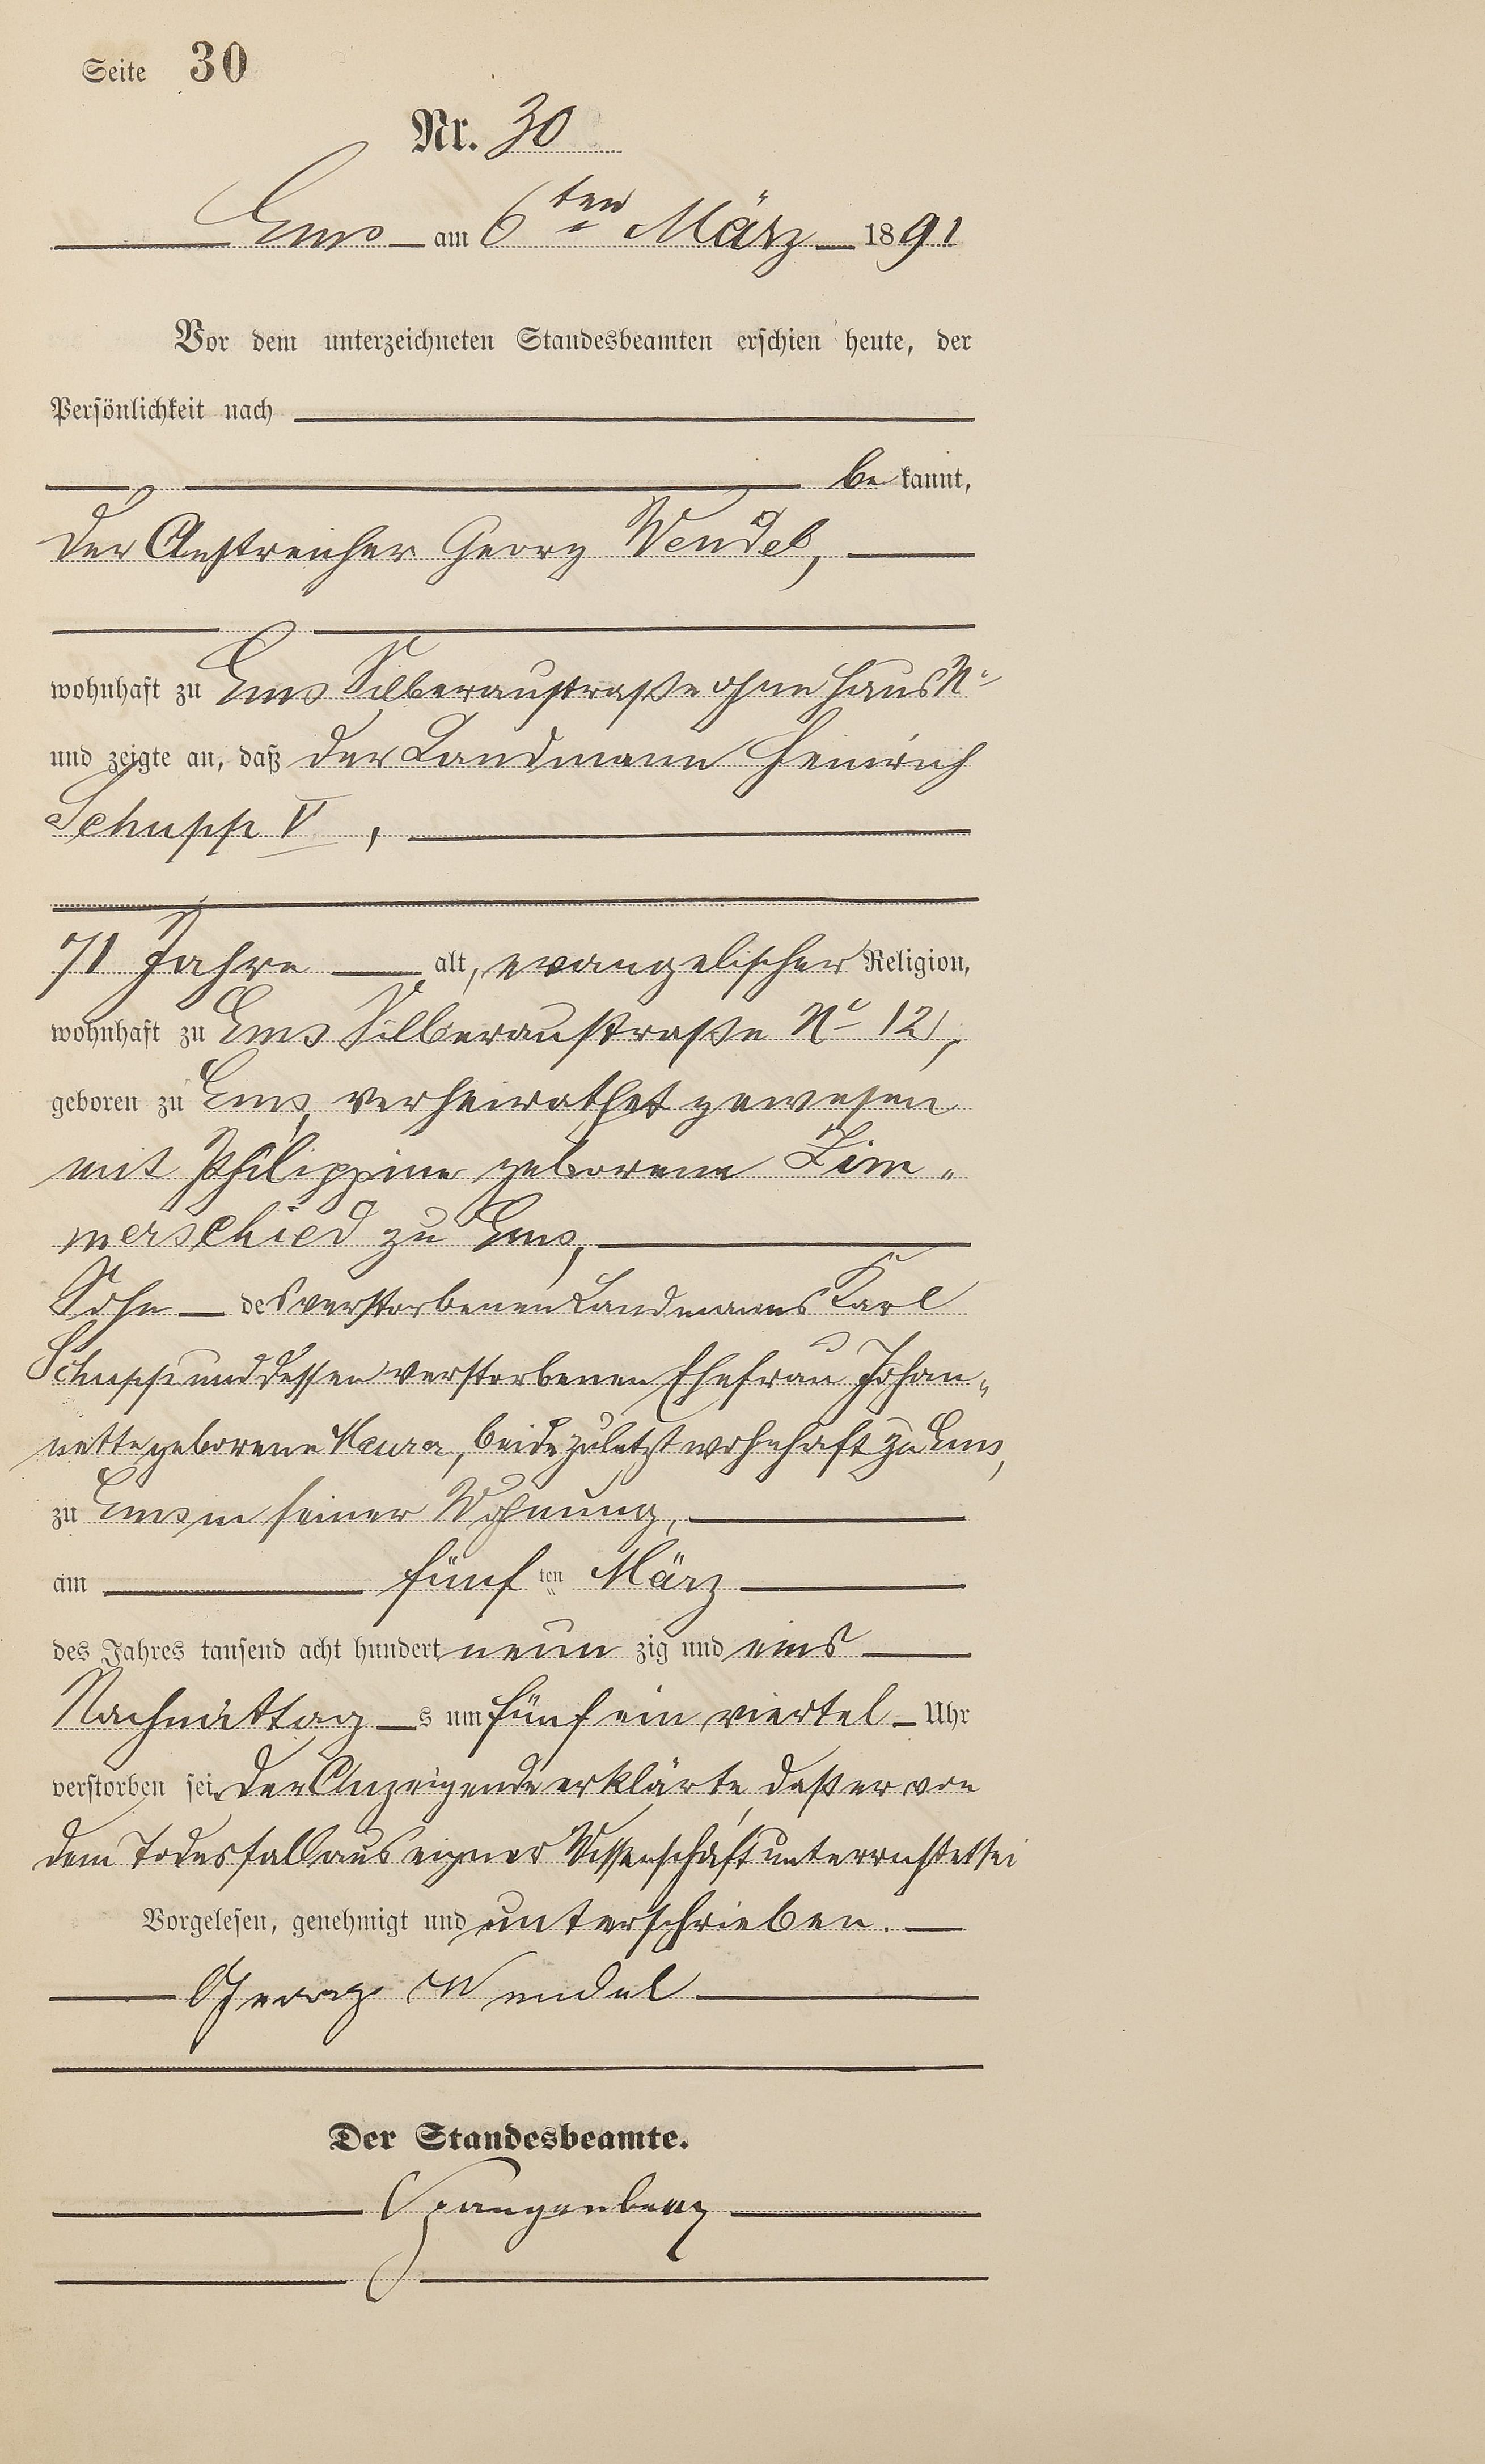 Seite 30
Nr. 30
Ems am 6ten März 1891
Vor dem unterzeichneten Standesbeamten erschien heute, der
Persönlichkeit nach
be kannt,
der Anstreicher Georg Wendel,
wohnhaft zu Ems Silberaustraße ohne Haus No
und zeigte an, daß der Landmann Heinrich
Schupp V,
71 Jahre alt, evangelischer Religion,
wohnhaft zu Ems Silberaustraße No 12,
geboren zu Ems, verheirathet gewesen
mit Philippine geborene Zim„
merschied zu Ems,
Sohn des verstorbenen Landmanns Karl
Schupp und dessen verstorbenen Ehefrau Johan„
nette geborene Meurer, beide zuletzt wohnhaft zu Ems,
zu Ems in seiner Wohnung,
am fünf ten März
des Jahres tausend acht hundert neun zig und eins
Nachmittag s um fünf ein viertel Uhr
verstorben sei. Der Anzeigende erklärte, daß er von
dem Todesfall aus eigner Wissenschaft unterrichtet sei
Vorgelesen, genehmigt und unterschrieben.
Georg Wendel
Der Standesbeamte.
Spangenberg